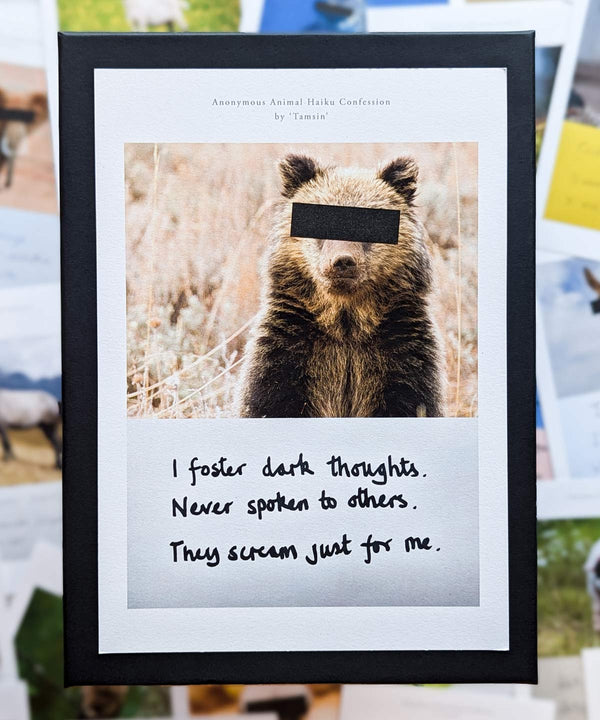 Anonymous Animal Haiku Confession
by 'Tamsin'
I foster dark thoughts.
Never spoken to others.
They scream just for me.